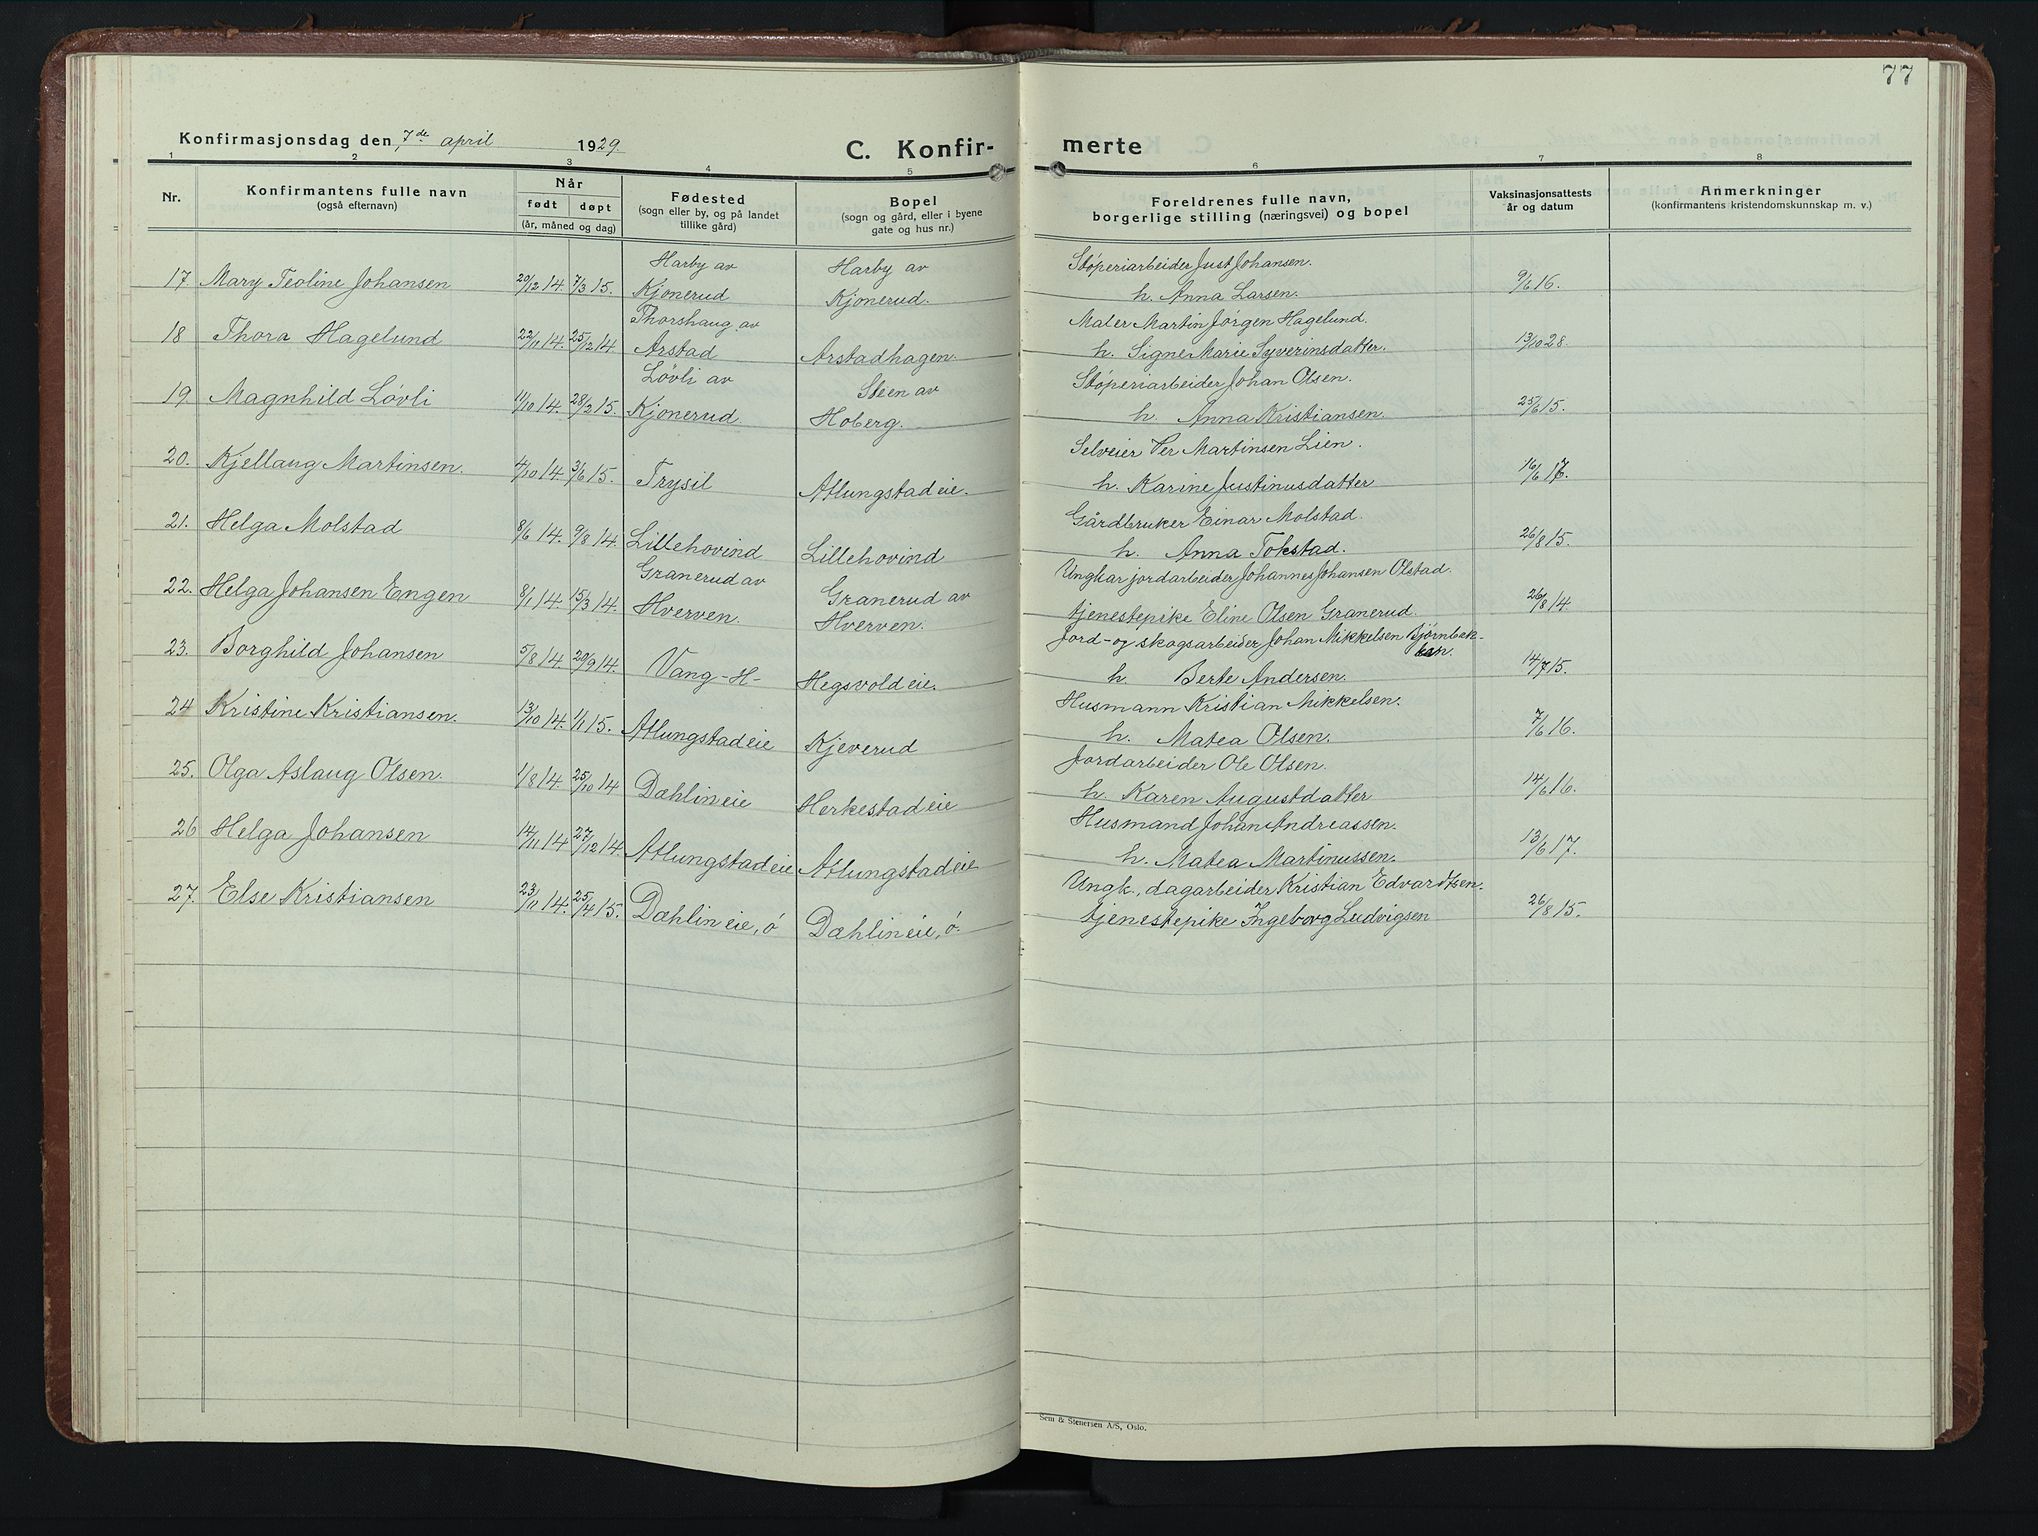 77
Konfirmasjonsdag den 7de april 1929.
C. Konfir-
merte
1 2 3 4 5 6 7 8
Nr.
Konfirmantens fulle navn
(også efternavn)
Når
født døpt
(år, måned og dag)
Fødested
(sogn eller by, og på landet
tillike gård)
Bopel
(sogn og gård, eller i byene
gate og hus nr.)
Foreldrenes fulle navn,
borgerlige stilling (næringsvei) og bopel
Vaksinasjonsattests
år og datum
Anmerkninger
(konfirmantens kristendomskunnskap m. v.)
Harby av Harby av Støperiarbeider Just Johansen.
17 Mary Teoline Johansen 20/12 14. 7/3 15. Kjonerud Kjonerud. h. Anna Larsen. 9/6 16.
Thorshaug av Maler Martin Jørgen Hagelund.
18 Thora Hagelund 22/11 14. 25/12 14 Arstad Arstadhagen. h. Signe Marie Syverinsdatter. 13/10 28.
Løvli av Steen av Støperiarbeider Johan Olsen.
19. Magnhild Løvli 11/10 14. 28/2 15. Kjonerud. Hoberg. h. Anna Kristiansen. 25/6 15.
Selveier Per Martinsen Lien.
20. Kjellaug Martinsen. 4/10 14. 3/6 15. Trysil Atlungstad eie. h. Karine Justinusdatter 16/6 17.
Gårdbruker Einar Molstad.
21. Helga Molstad 8/6 14. 9/8 14. Lillehovind Lillehovind h. Anna Tokstad. 26/8 15.
Granerud av Granerud av Ungkar jordarbeider Johannes Johansen Olstad.
22. Helga Johansen Engen 8/1 14. 15/3 14. Hverven. Hverven. tjenestepike Eline Olsen Granerud. 26/8 14
Jord- og skogsarbeider Johan Mikkelsen Bjørnbak-
ken.
23. Borghild Johansen 5/8 14. 20/9 14. Vang-H- Hegsvold eie. h. Berte Andersen. 14/7 15.
Husmann Kristian Mikkelsen.
24 Kristine Kristiansen. 13/10 14. 1/1 15. Atlungstad eie Kjeverud h. Matea Olsen. 7/6 16.
Jordarbeider Ole Olsen.
25. Olga Aslaug Olsen. 1/8 14. 25/10 14 Dæhlin eie Herkestad eie h. Karen Augustdatter 14/6 16.
Husmand Johan Andreassen.
26 Helga Johansen 14/11 14 27/12 14. Atlungstad eie Atlungstad eie h. Matea Martinussen. 13/6 17.
Ungk., dagarbeider Kristian Edvardsen.
27. Else Kristiansen 23/11 14. 25/4 15. Dæhlin eie, ø Dæhlin eie, ø. tjenestepike Ingeborg Ludvigsen 26/8 15.
Sem & Stenersen A/S, Oslo.